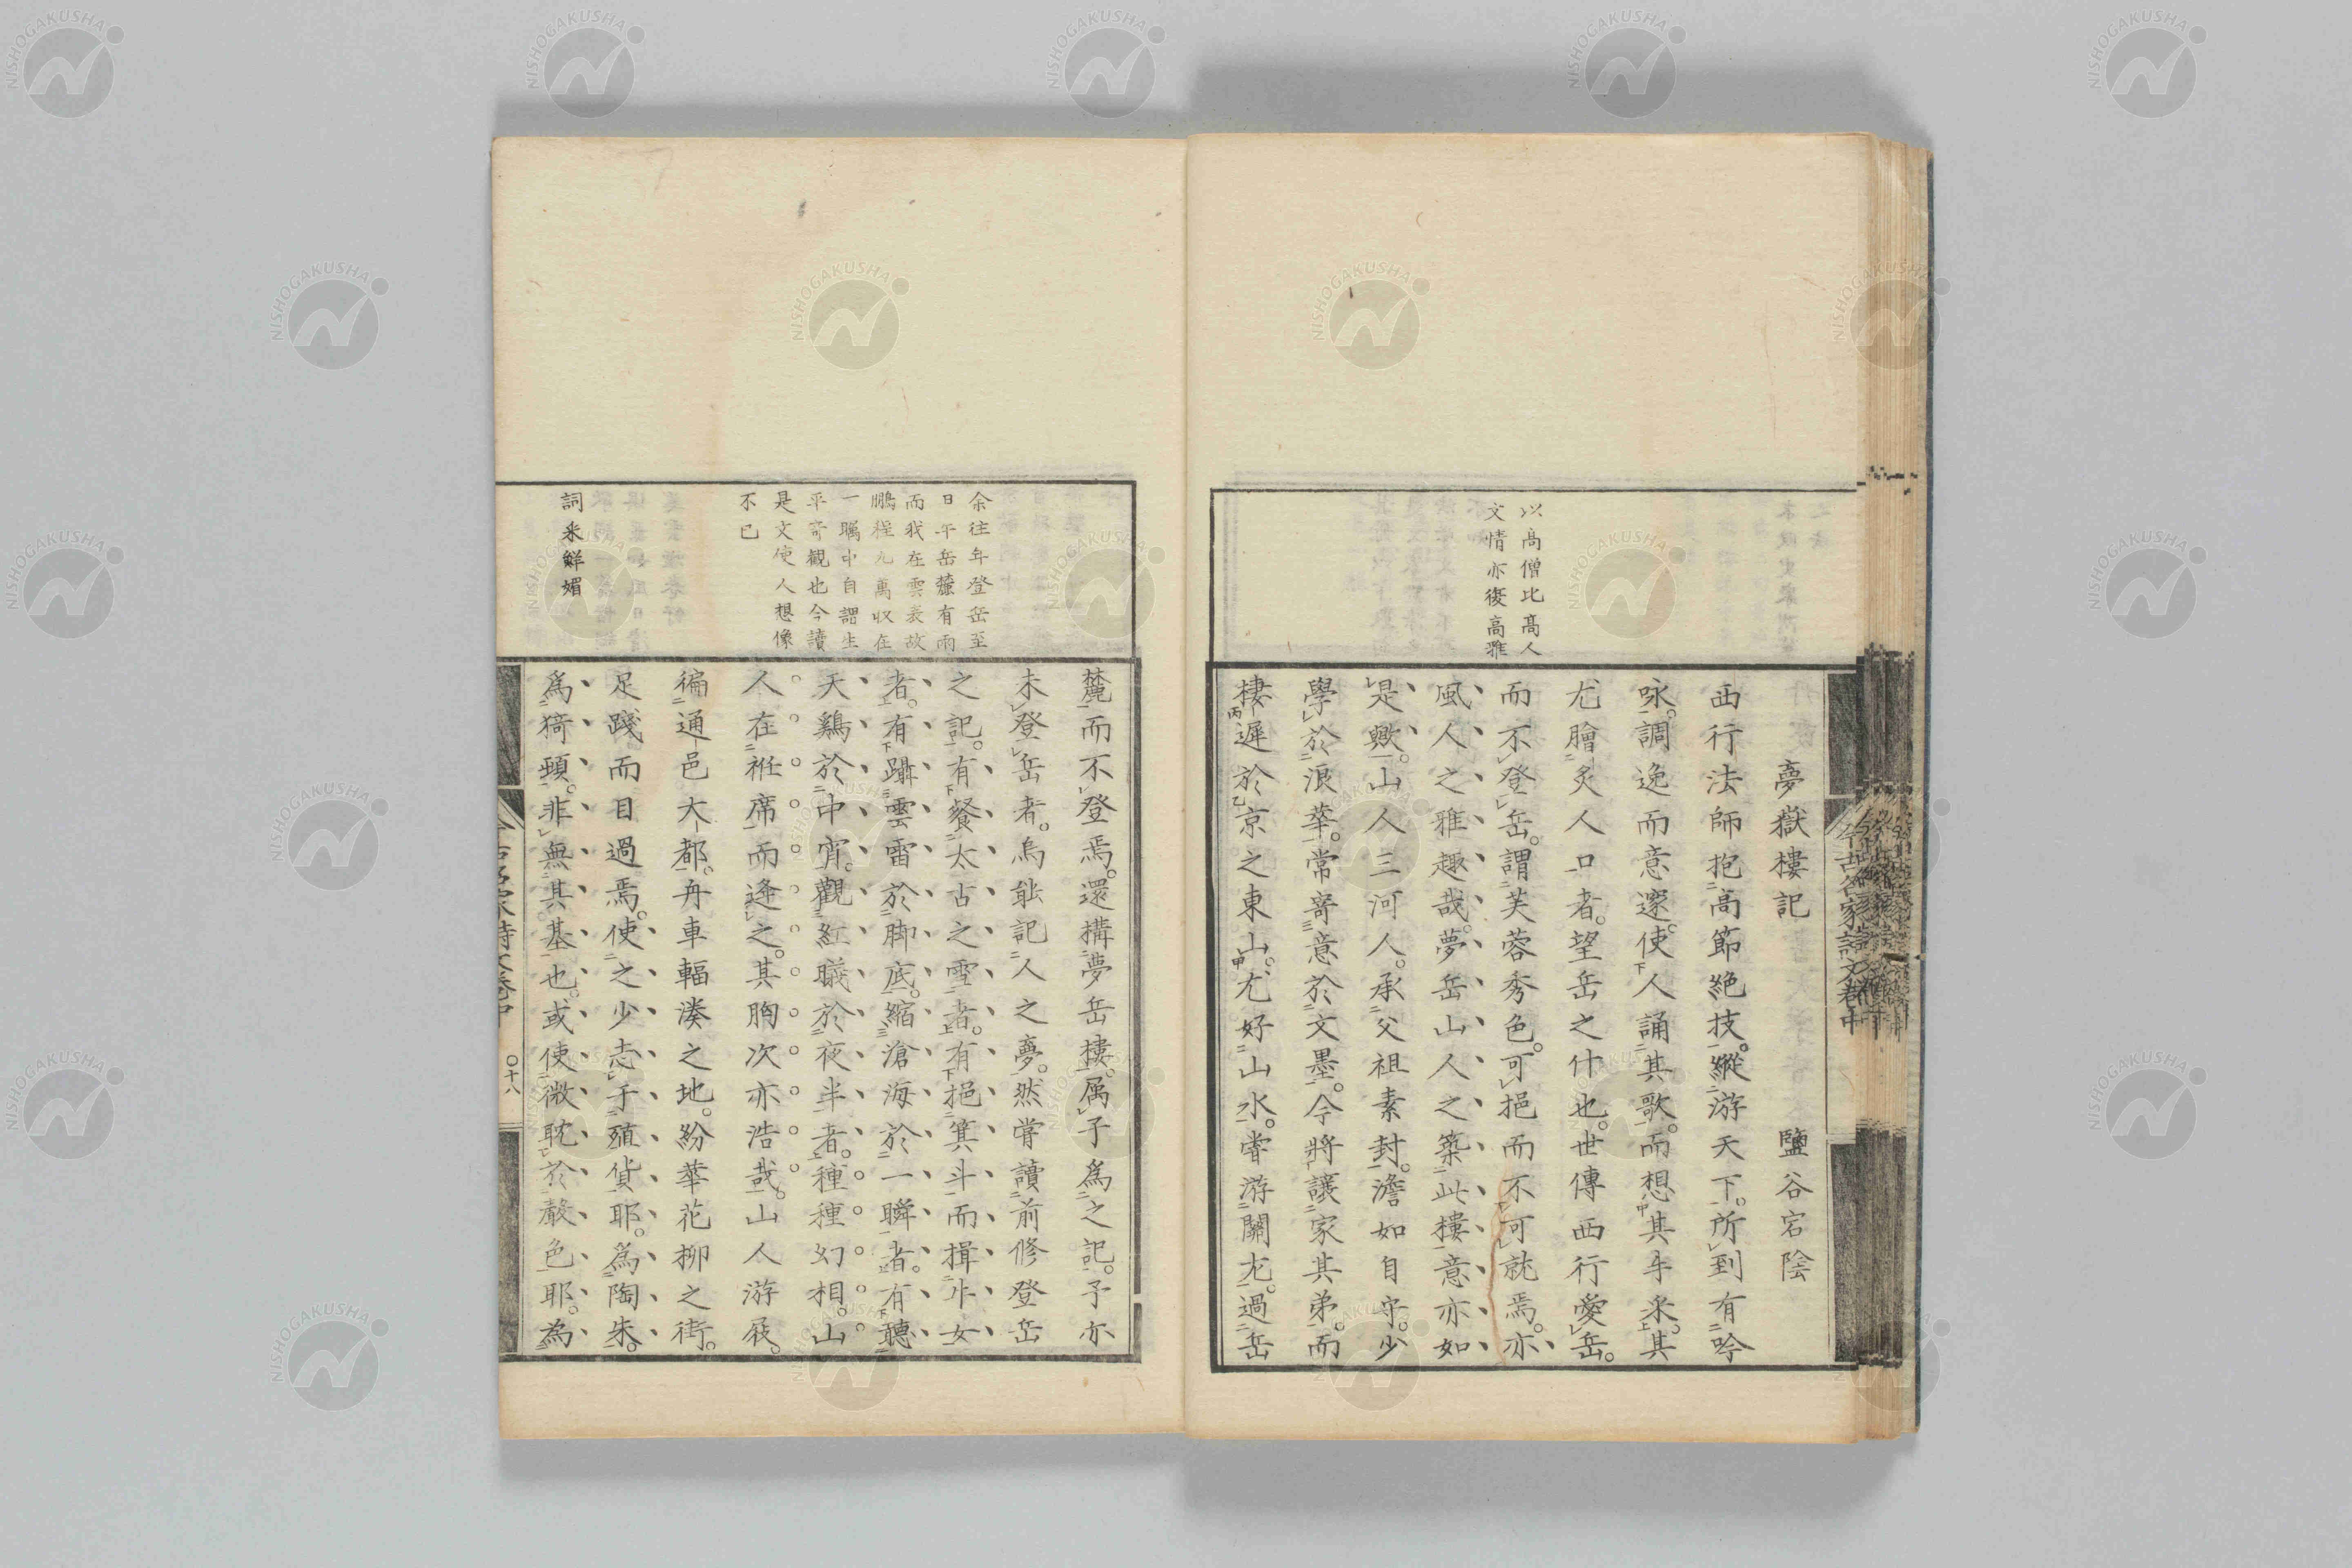 夢嶽樓記　鹽谷宕陰
西行法師抱高節絕技。縱游天下。所到有吟
咏。調逸而意邃。使人誦其歌。而想其丰采。其
尤膾炙人口者。望岳之什也。世傳西行愛岳。
而不登岳。謂芙蓉秀色。可挹而不可就焉。亦
風人之雅趣哉。夢岳山人之築此樓。意亦如
是歟。山人三河人。承父祖素封。澹如自守。少
學於浪華。常寄意於文墨。今將讓家其弟。而
棲遲於京之東山。尤好山水。嘗游關左。過岳
以高僧比高人
文情亦復高雅
麓而不登焉。還構夢岳樓。属予爲之記。予亦
未登岳者。烏能記人之夢。然嘗讀前修登岳
之記。有餐太古之雪者。有挹箕斗而揖牛女
者。有躡雲雷於脚底。縮滄海於一瞬者。有聽
天鷄於中宵。觀紅曦於夜半者。種種幻相。山
人在袵席而逢之。其胸次亦浩哉。山人游屐。
徧通邑大都。舟車輻湊之地。紛華花柳之街。
足踐而目過焉。使之少志于殖貨耶。爲陶朱。
爲猗頓。非無其基也。或使微耽於聲色耶。為
余往年登岳至
日午岳麓有雨
而我在雲表故
鵬程九萬収在
一矚中自謂生
平奇觀也今讀
是文使人想像
不已
詞采鮮媚
十八
今古名家詩文卷中
NISHOGAKUSHA